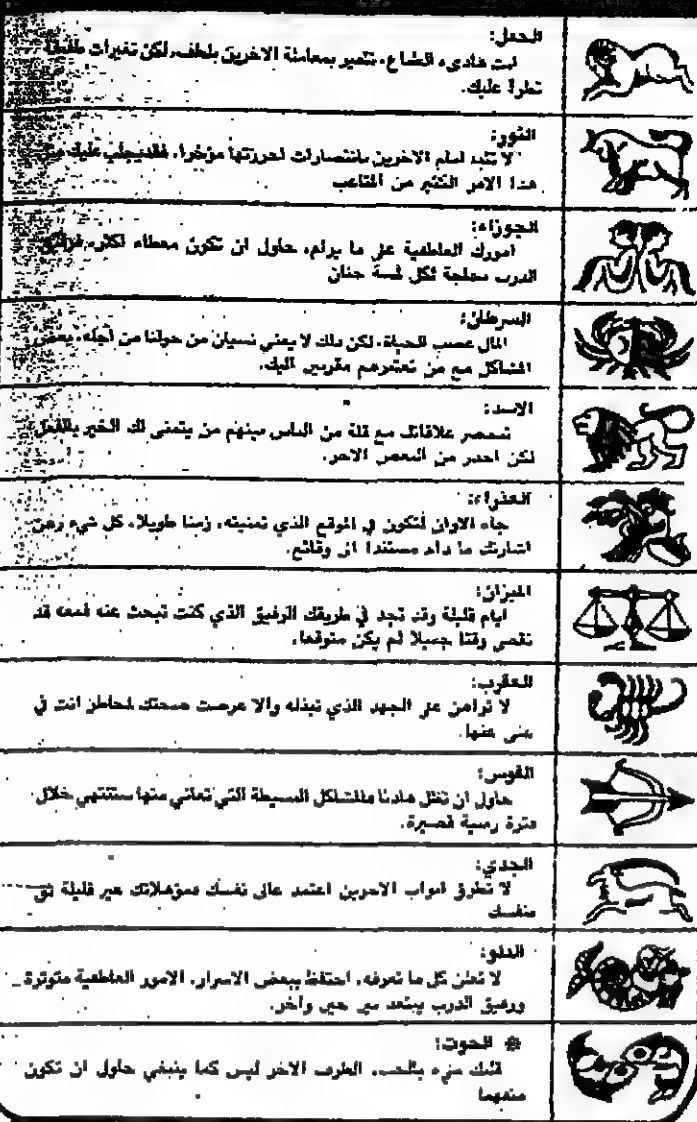 الحمل:
انت هادىء الطباع، تتميز بمعاملة الاخرين بلطف، لكن تغيرات
تطرأ عليك.
الثور:
لا تتبه امام الاخرين بانتصارات احرزتها مؤخرا، فقد يجلب عليك
هذا الامر الكثير من المتاعب
الجوزاء:
امورك العاطفية على ما يرام، حاول ان تكون معطاء اكثر، فرفيق
الدرب بحاجة لكل لمسة حنان
السرطان:
المال عصب الحياة، لكن ذلك لا يعني نسيان من حولنا من اجله، بعض
المشاكل مع من تعتبرهم مقربين اليك.
الاسد:
تنحصر علاقاتك مع قلة من الناس بينهم من يتمنى لك الخير بالفعل
لكن احذر من البعض الاخر.
العذراء:
جاء الاوان لتكون في الموقع الذي تمنيته، زمنا طويلا، كل شيء رهن
اشارتك ما دام مستندا الى وقائع.
الميزان:
ايام قليلة وقد تجد في طريقك الرفيق الذي كنت تبحث عنه فمعه قد
تقضي وقتا جميلا لم يكن متوقعا.
العقرب:
لا تراهن على الجهد الذي تبذله والا عرضت صحتك لمخاطر انت في
غنى عنها.
القوس:
حاول ان تظل هادئا فالمشاكل البسيطة التي تعاني منها ستنتهي خلال
فترة زمنية قصيرة.
الجدي:
لا تطرق ابواب الاخرين اعتمد على نفسك فمؤهلاتك غير قليلة ثق
بنفسك
الدلو:
لا تعلن كل ما تعرفه، احتفظ ببعض الاسرار، الامور العاطفية متوترة
ورفيق الدرب يبتعد بين حين واخر.
الحوت:
قلبك مليء بالحب، الطرف الاخر ليس كما ينبغي حاول ان تكون
متفهما